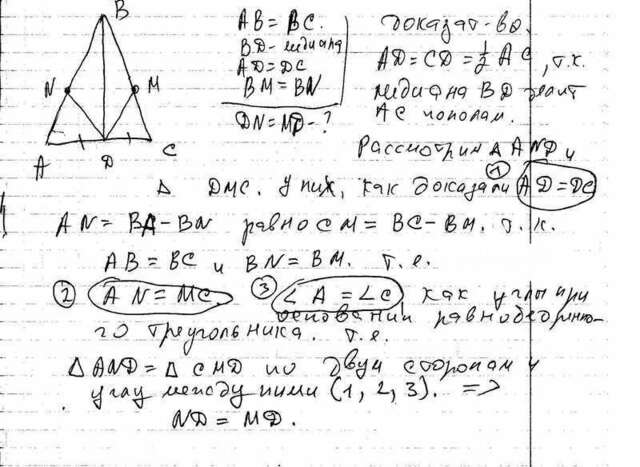 B
N
M
A
D
C
AB = BC.
BD - медиана
AD = DC
BM = BN
DN = MD - ?
Доказат-во.
AD = CD = 1/2 AC, т.к.
медиана BD делит
AC пополам.
Рассмотрим △ AND и
△ DMC. У них, как доказали ① AD = DC
AN = BA - BN равно CM = BC - BM. т.к.
AB = BC и BN = BM. т.е.
② AN = MC. ③ ∠A = ∠C как углы при
основании равнобедренно-
го треугольника. т.е.
△ AND = △ CMD по двум сторонам и
углу между ними (1, 2, 3). =>
ND = MD.